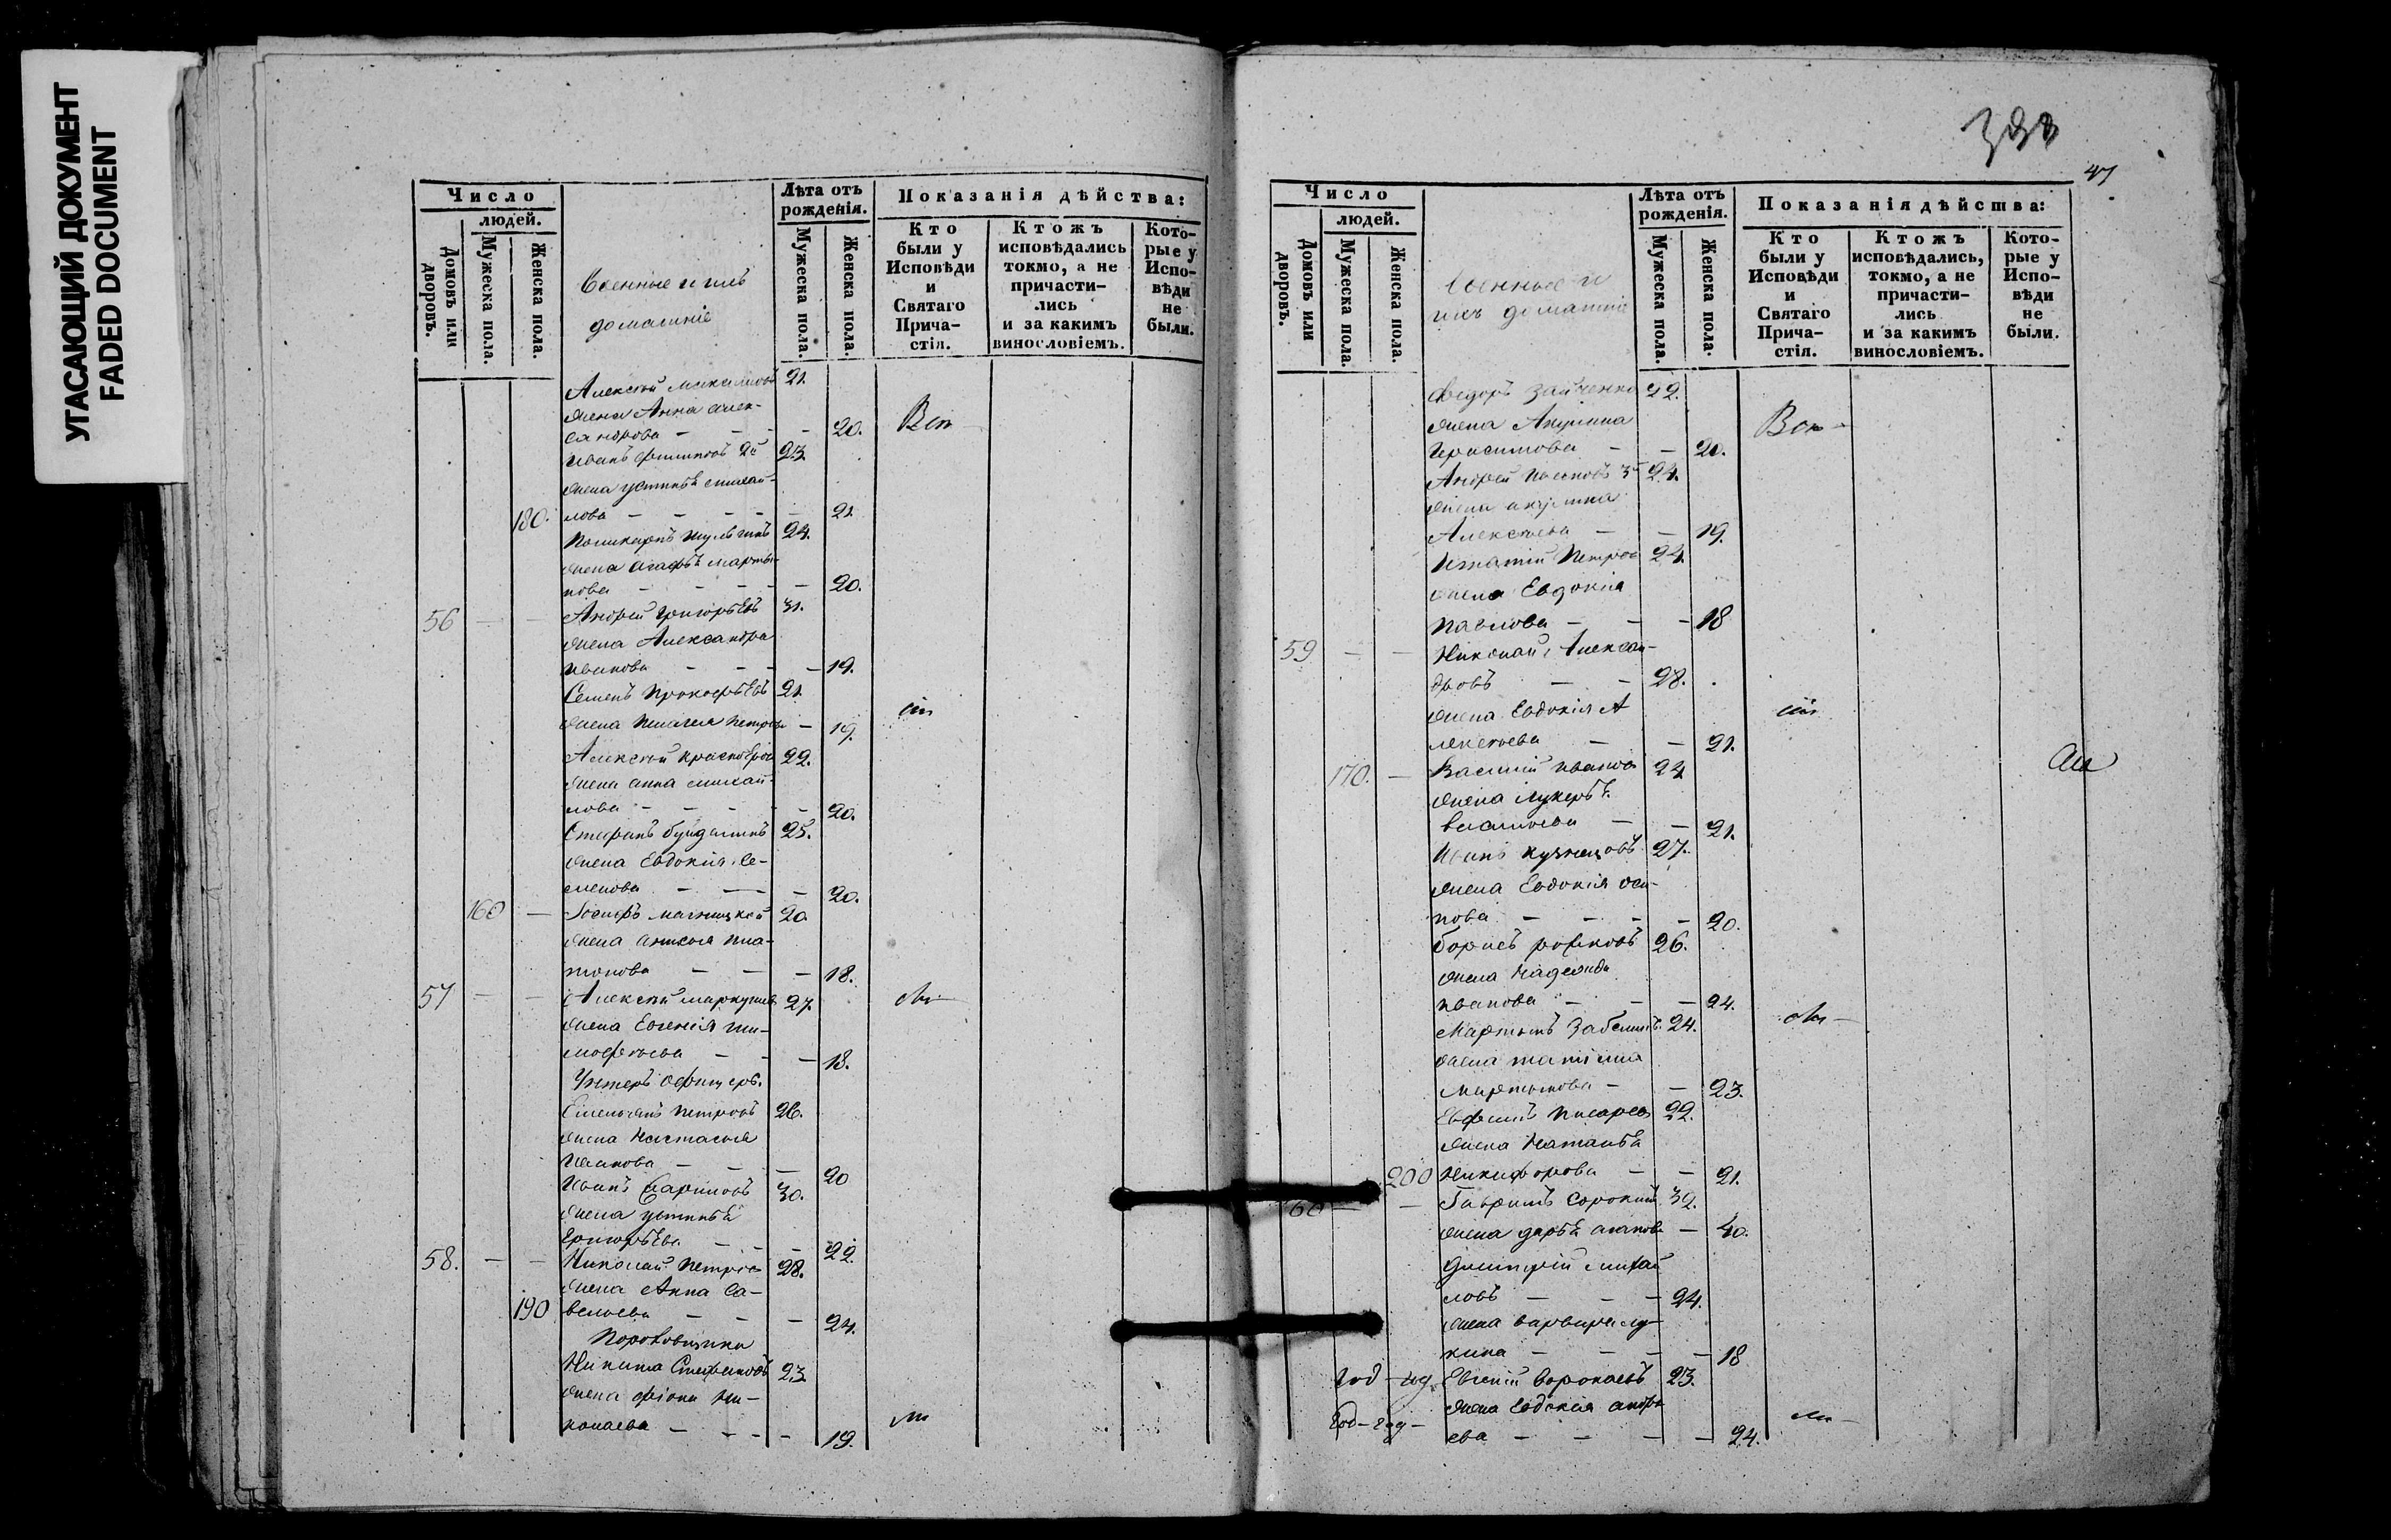 УГАСАЮЩИЙ ДОКУМЕНТ
FADED DOCUMENT
Число
людей.
Домовъ или дворовъ.
Мужеска пола.
Женска пола.
Военные и ихъ
домашніе
Лѣта отъ рожденія.
Мужеска пола.
Женска пола.
Показанія дѣйства:
Кто были у Исповѣди и Святаго Прича-стія.
Ктожъ исповѣдались токмо, а не причасти-лись и за какимъ винословіемъ.
Кото-рые у Испо-вѣди не были.
Алексѣй Максимовъ 21.
жена Анна Алек-
сандрова — — — 20.
Иванъ Филиповъ 2й 23.
жена Устинья Михай-
180. лова — — — — 21
Поликарпъ Шульгинъ 24.
жена Агафья Марты-
нова — — — — 20.
56 — — Андрей Григорьевъ 31.
жена Александра
Иванова — — — — 19.
Семенъ Прокофьевъ 21.
жена Пелагея Петрова — 19.
Алексѣй 22.
жена Анна Михай-
лова — — — — 20.
Стефанъ 25.
жена Евдокія Се-
менова — — — 20.
160 — Іосифъ 20
жена Анисья Пла-
тонова — — — 18.
57 — — Алексѣй 27.
жена Евгенія Ти-
мофеева — — — 18.
Унтеръ Офицеры.
Емельянъ Петровъ 26.
жена Настасья
Иванова — — — 20
Иванъ 30.
жена Устинья
Григорьева — — — 22.
58. — — Николай Петровъ 28.
жена Анна Са-
190 вельева — — — 24.
Никита Стефановъ 23
жена Фіона Ни-
колаева — — — — 19.
47
Число
людей.
Домовъ или дворовъ.
Мужеска пола.
Женска пола.
Военные и
ихъ домашніе
Лѣта отъ рожденія.
Мужеска пола.
Женска пола.
Показанія дѣйства:
Кто были у Исповѣди и Святаго Прича-стія.
Ктожъ исповѣдались, токмо, а не причасти-лись и за какимъ винословіемъ.
Кото-рые у Испо-вѣди не были.
Федоръ Зайченко 22.
жена Акулина
Герасимова — — 20.
Андрей 3й 24.
жена Акулина
Алексѣева — — 19.
Игнатій Петровъ 24.
жена Евдокія
Павлова — — — 18
59 — — Николай Алексан-
дровъ — — 28.
жена Евдокія А
лексѣева — — 21.
170. — Василій Ивановъ 24
жена Лукерья
Васильева — — 21.
Иванъ Кузнецовъ 27.
жена Евдокія Оси-
пова — — — — 20.
Борисъ 26.
жена Надежда
Иванова — — — 24.
Мартынъ Забелинъ 24.
жена Татіана
Мартынова — — 23.
Евфимъ Писарев 22.
жена Наталья
200 Никифорова — — 21.
60 — — Гаврилъ Сорокинъ 32.
жена Дарья — 40.
Димитрій Михай
ловъ — — — 24.
жена Варвара Лу-
кина — — — — 18
Евгеній 23.
жена Евдокія Андре
ева — — — — 24.